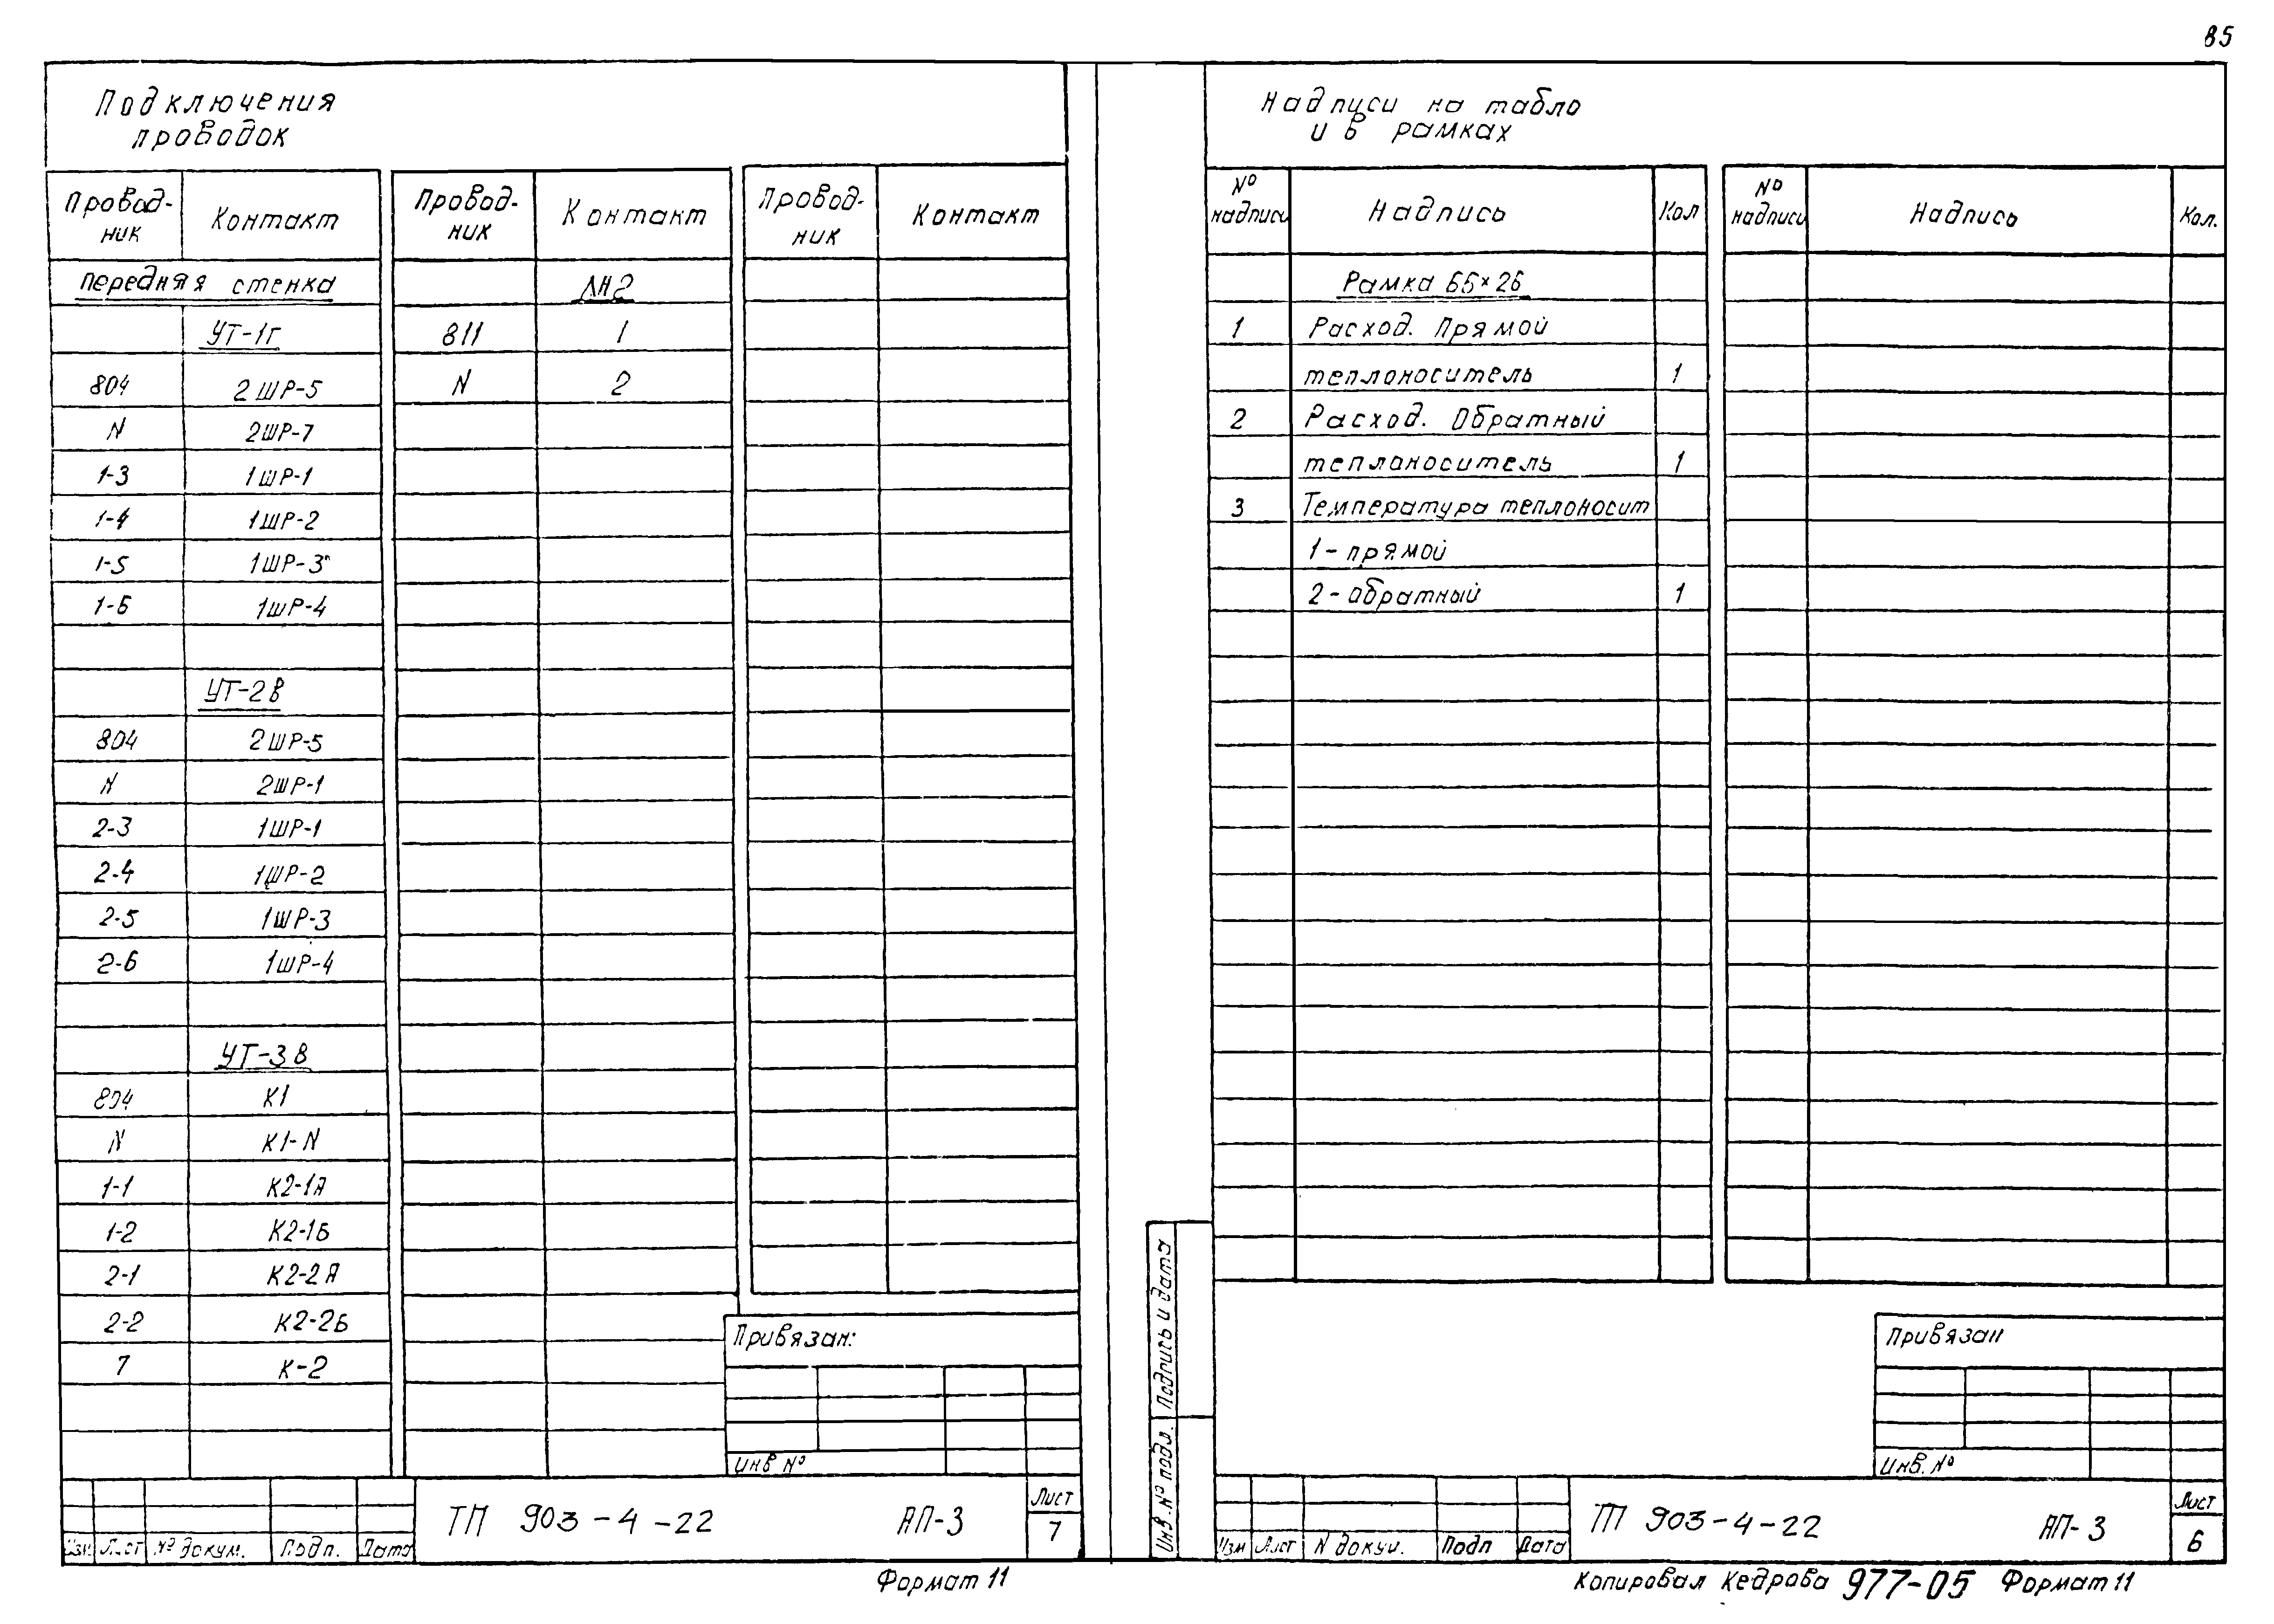 85
Подключения
проводок
Провод-
ник
Контакт
Провод-
ник
Контакт
Провод-
ник
Контакт
передняя стенка
УТ-1г
804 2ШР-5
N 2ШР-7
1-3 1ШР-1
1-4 1ШР-2
1-5 1ШР-3
1-6 1ШР-4
УТ-2в
804 2ШР-5
N 2ШР-1
2-3 1ШР-1
2-4 1ШР-2
2-5 1ШР-3
2-6 1ШР-4
УТ-3в
804 К1
N К1-N
1-1 К2-1А
1-2 К2-1Б
2-1 К2-2А
2-2 К2-2Б
7 К-2
ЛН2
811 1
N 2
Привязан:
Инв №
Изм Лист № докум. Подп. Дата
ТП 903-4-22 АП-3
Лист
7
Формат 11
Надписи на табло
и в рамках
№
надписи
Надпись
Кол
№
надписи
Надпись
Кол.
Рамка 66×26
1 Расход. Прямой
теплоноситель 1
2 Расход. Обратный
теплоноситель 1
3 Температура теплоносит
1-прямой
2-обратный 1
Подпись и дата
Инв. № подл.
Привязан
Инв. №
Изм Лист N докум. Подп Дата
ТП 903-4-22 АП-3
Лист
6
Копировал Кедрова 977-05 Формат 11